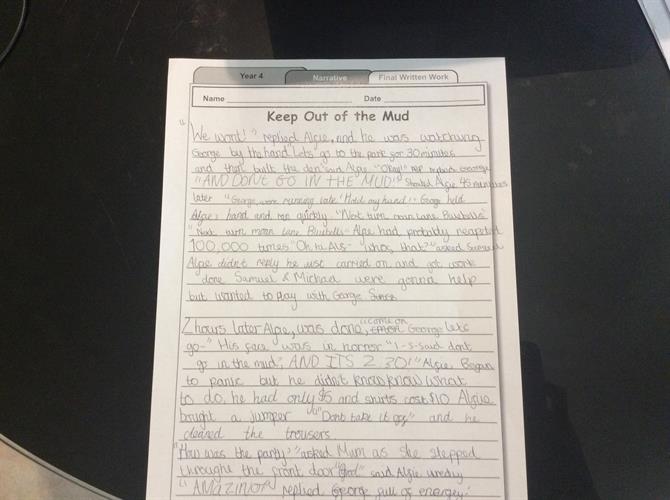 Year 4 Narrative Final Written Work
Name Date
Keep Out of the Mud
"We wont!" replied Algie, and he was watching
George by the hand "Lets go to the park for 30 minutes
and then built the den" said Algie "Okay!" replied George
"AND DON'T GO IN THE MUD!" shouted Algie 45 minutes
later "George, were running late! Hold my hand!" George held
Algie's hand and ran quickly. "Next turn moon Lane Bluebells"
"Next turn moon Lane Bluebells" Algie had probably reapeted
100,000 times "Oh hi Als-" "whos that?" asked Samuel
Algie didn't reply he just carried on and got work
done Samuel & Michael were gonna help
but wanted to play with George
2 hours later Algie, was done, "come on George let's
go-" His face was in horror "I-I-said dont
go in the mud", AND ITS 2 30!" Algie Began
to panic but he didn't know what
to do, he had only $5 and shirts cost $10 Algie
bright a jumper "Dont take it off" and he
cleaned the trousers
"How was the party" asked Mum as she stepped
throughe the front door "good" said Algie
"AMAZING" replied George full of energey!